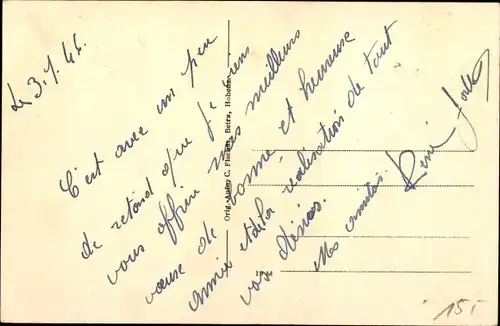 Le 3.1.46.
C'est avec un peu
de retard que je viens
vous offrir mes meilleurs
voeux de bonne et heureuse
année et de la réalisation de tout
vos désirs.
Mes amitiés.
René
Orig.-Aufn. C. Betra, Hohenz.
15